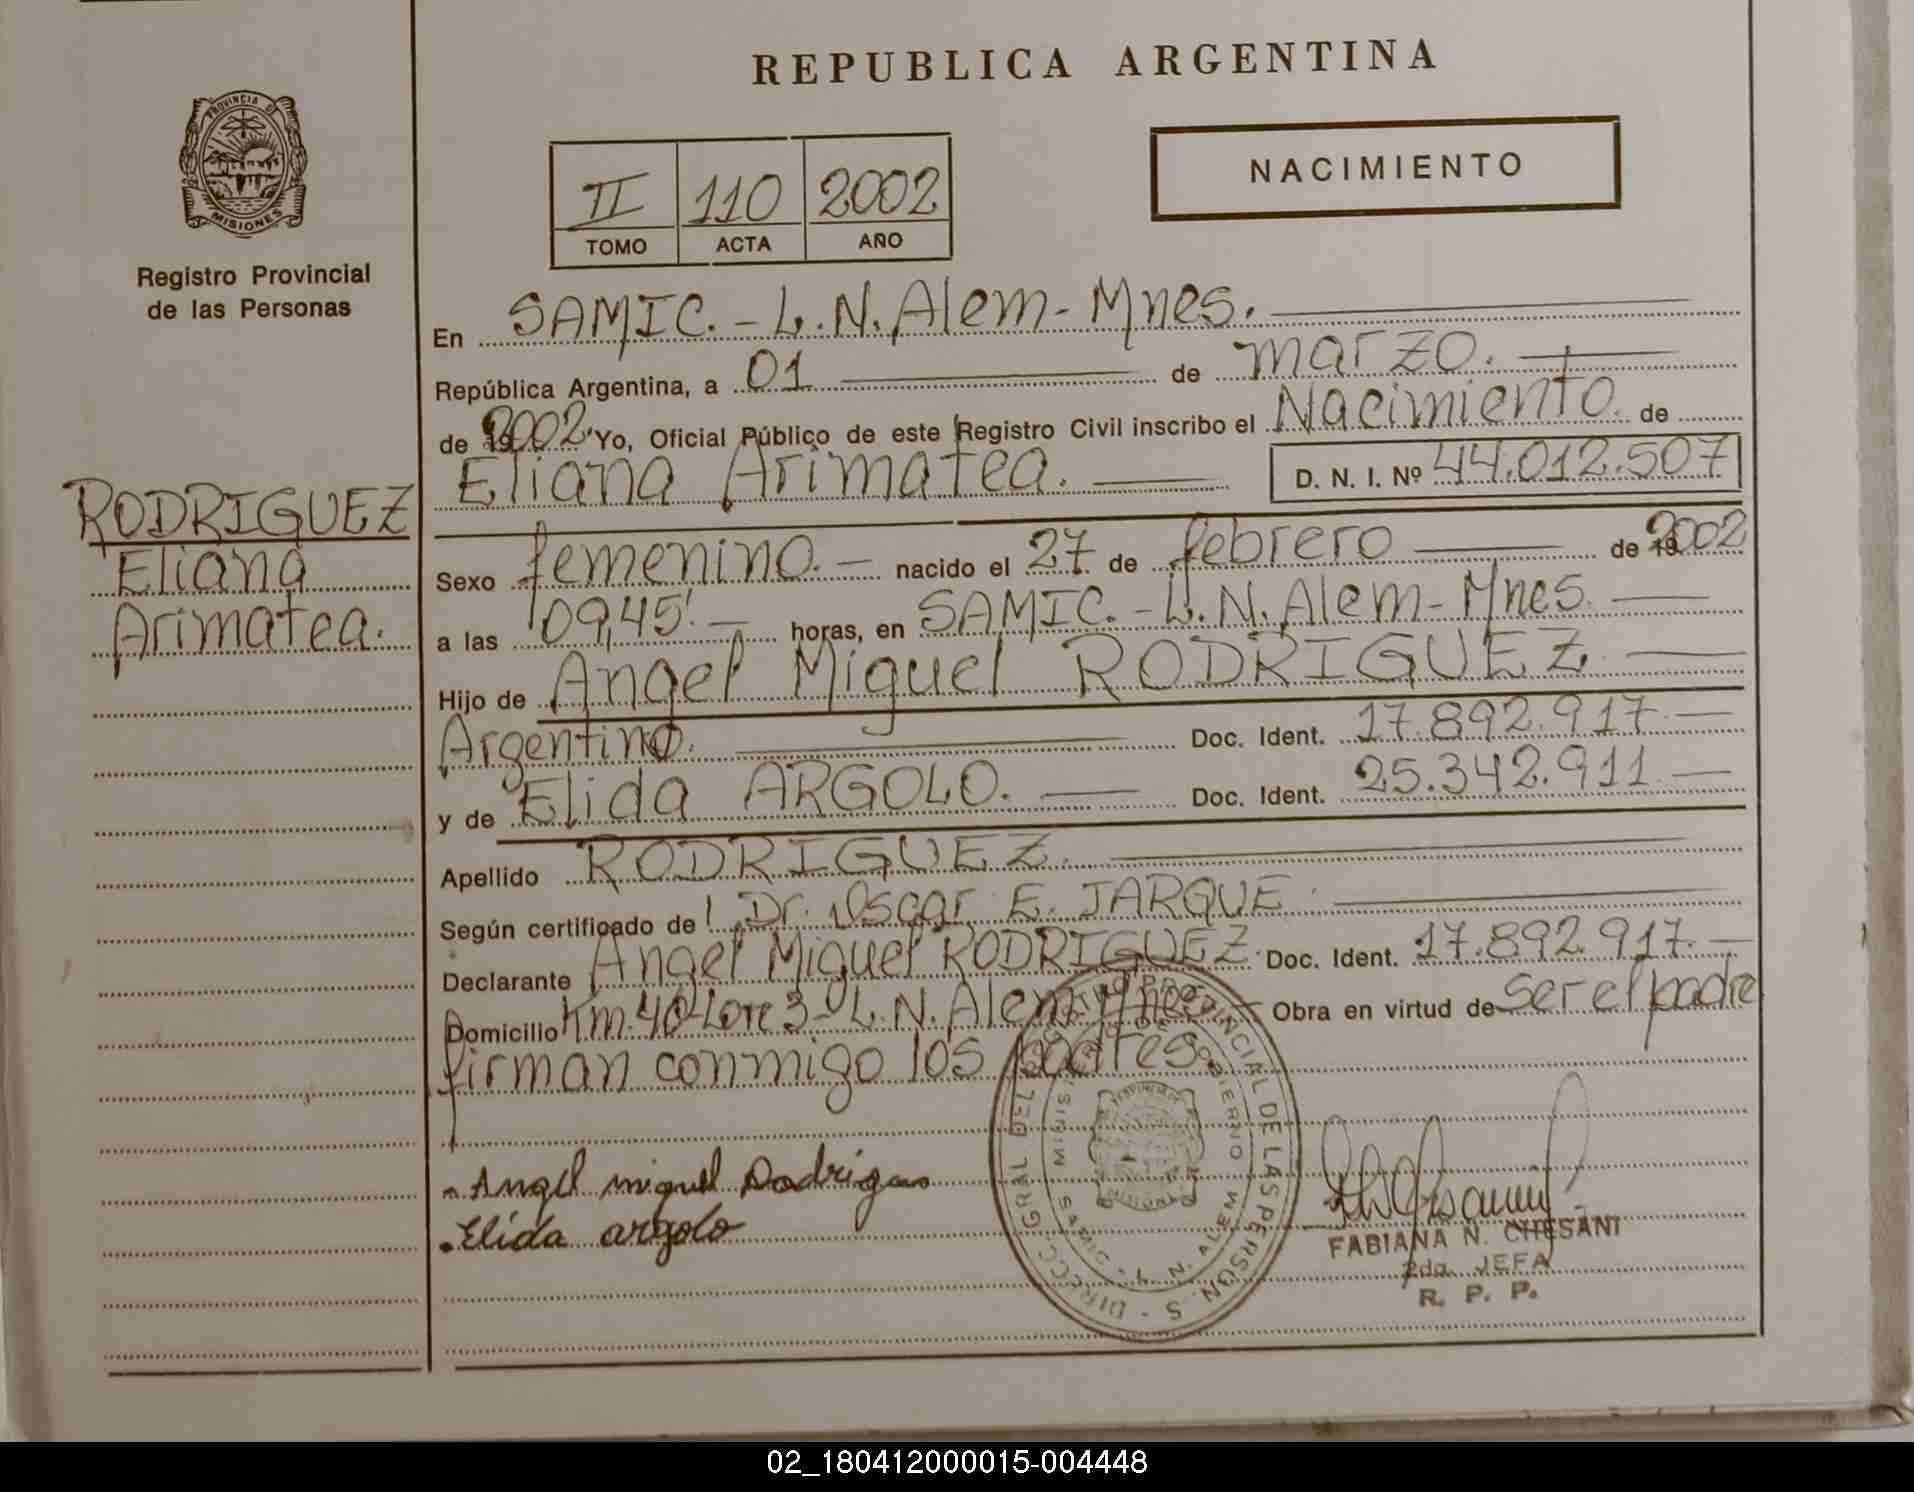 REPUBLICA ARGENTINA
PROVINCIA D
MISIONES
Registro Provincial
de las Personas
NACIMIENTO
II 110 2002
TOMO ACTA AÑO
En SAMIC. - L. N. Alem - Mnes.
República Argentina, a 01 de marzo.
de 2002 Yo, Oficial Público de este Registro Civil inscribo el Nacimiento de
Eliana Arimatea. D. N. I. Nº 44.012.507
RODRIGUEZ
Eliana
Arimatea.
Sexo femenino. - nacido el 27 de febrero de 2002
a las 09,45'. - horas, en SAMIC. - L. N. Alem - Mnes.
Hijo de Angel Miguel RODRIGUEZ.
Argentino. Doc. Ident. 17.892.917. -
y de Elida ARGOLO. Doc. Ident. 25.342.911. -
Apellido RODRIGUEZ.
Según certificado de Dr. Oscar E. JARQUE.
Declarante Angel Miguel RODRIGUEZ. Doc. Ident. 17.892.917. -
Domicilio Km. 40 - Lote 3 - L. N. Alem - Mnes - Obra en virtud de ser el padre
firman conmigo los padres.
Angel miguel Rodrigues
Elida argolo
FABIANA N. CHESANI
2da. JEFA
R. P. P.
02_180412000015-004448